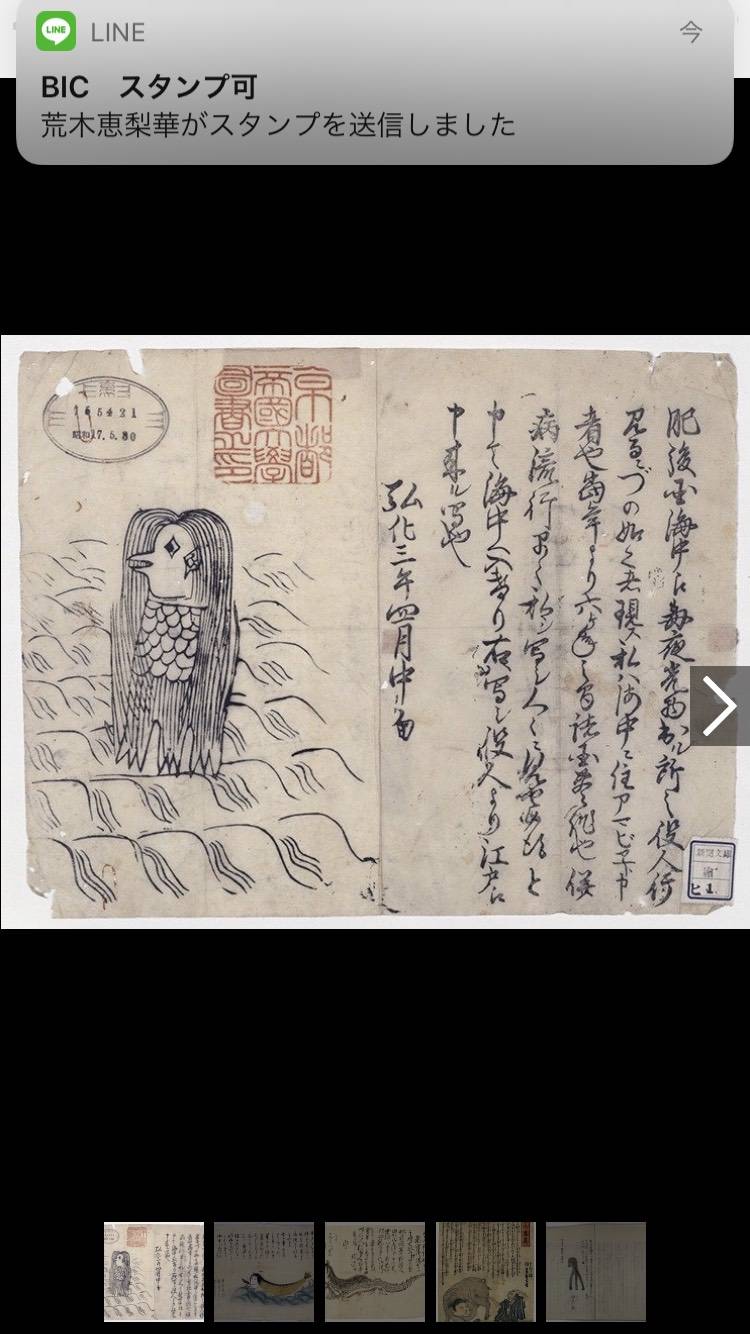 LINE
今
BIC　スタンプ可
荒木恵梨華がスタンプを送信しました
165421
昭和17.5.30
京都
帝國大學
圖書之印
肥後国海中え毎夜光物出ル所之役人行
見るニづの如く者現ス私ハ海中ニ住アマビヱト申
者也当年より六ヶ年之間諸国豊作也併
病流行早々私シ写シ人々ニ見せ候得と
申て海中へ入けり右写シ役人より江戸え
申来ル写也
弘化三年四月中旬
ヒ 1